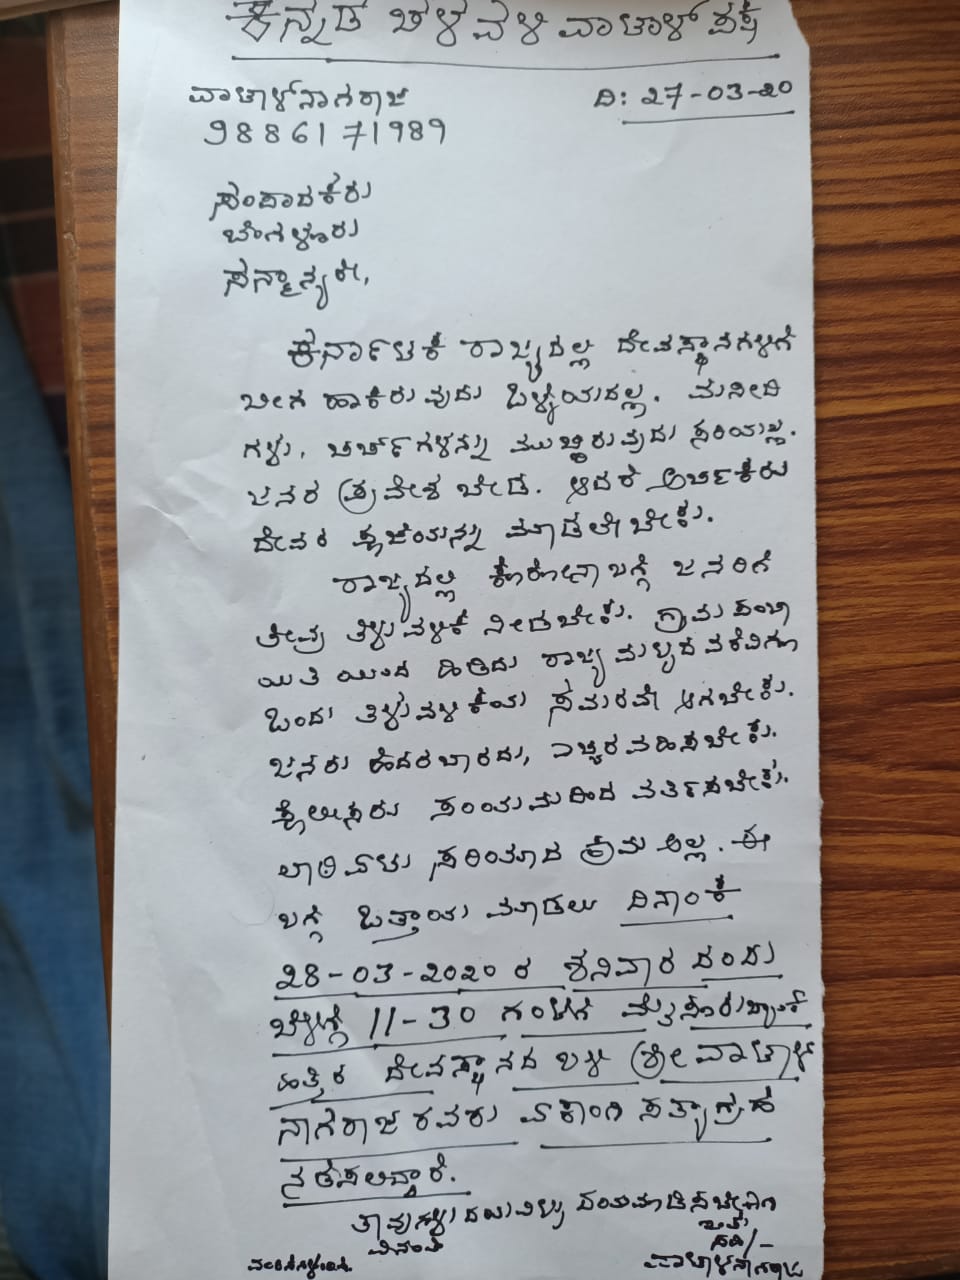 ಕನ್ನಡ ಚಳವಳಿ ವಾಟಾಳ್ ಪಕ್ಷ
ವಾಟಾಳ್ ನಾಗರಾಜ
ದಿ: 27-03-20
9886171989
ಸಂಪಾದಕರು
ಬೆಂಗಳೂರು
ಸನ್ಮಾನ್ಯರೇ,
ಕರ್ನಾಟಕ ರಾಜ್ಯದಲ್ಲಿ ದೇವಸ್ಥಾನಗಳಿಗೆ
ಬೀಗ ಹಾಕಿರುವುದು ಒಳ್ಳೆಯದಲ್ಲ. ಮಸೀದಿ
ಗಳು, ಚರ್ಚ್‌ಗಳನ್ನು ಮುಚ್ಚಿರುವುದು ಸರಿಯಲ್ಲ.
ಜನರ ಪ್ರವೇಶ ಬೇಡ. ಆದರೆ ಅರ್ಚಕರು
ದೇವರ ಪೂಜೆಯನ್ನು ಮಾಡಲೇ ಬೇಕು.
ರಾಜ್ಯದಲ್ಲಿ ಕೊರೋನಾ ಬಗ್ಗೆ ಜನರಿಗೆ
ತೀವ್ರ ತಿಳುವಳಿಕೆ ನೀಡಬೇಕು. ಗ್ರಾಮ ಪಂಚಾ
ಯಿತಿ ಯಿಂದ ಹಿಡಿದು ರಾಜ್ಯ ಮಟ್ಟದ ವರೆವಿಗೂ
ಒಂದು ತಿಳುವಳಿಕೆಯ ಸಮರವೇ ಆಗಬೇಕು.
ಜನರು ಹೆದರಬಾರದು, ಎಚ್ಚರ ವಹಿಸಬೇಕು.
ಪೊಲೀಸರು ಸಂಯಮದಿಂದ ವರ್ತಿಸಬೇಕು.
ಲಾಠಿ ಏಟು ಸರಿಯಾದ ಕ್ರಮ ಅಲ್ಲ. ಈ
ಬಗ್ಗೆ ಒತ್ತಾಯ ಮಾಡಲು ದಿನಾಂಕ
28-03-2020 ರ ಶನಿವಾರ ದಂದು
ಬೆಳಿಗ್ಗೆ 11-30 ಗಂಟೆಗೆ ಮೈಸೂರು ಬ್ಯಾಂಕ್
ಹತ್ತಿರ ದೇವಸ್ಥಾನದ ಬಳಿ ಶ್ರೀ ವಾಟಾಳ್
ನಾಗರಾಜ ರವರು ಏಕಾಂಗಿ ಸತ್ಯಾಗ್ರಹ
ನಡೆಸಲಿದ್ದಾರೆ.
ತಾವುಗಳು ದಯವಿಟ್ಟು ದಯಮಾಡಿಸಬೇಕಾಗಿ
ವಿನಂತಿ
ಇತಿ
ಸಹಿ/-
ವಂದನೆಗಳೊಂದಿಗೆ.
ವಾಟಾಳ್ ನಾಗರಾಜ